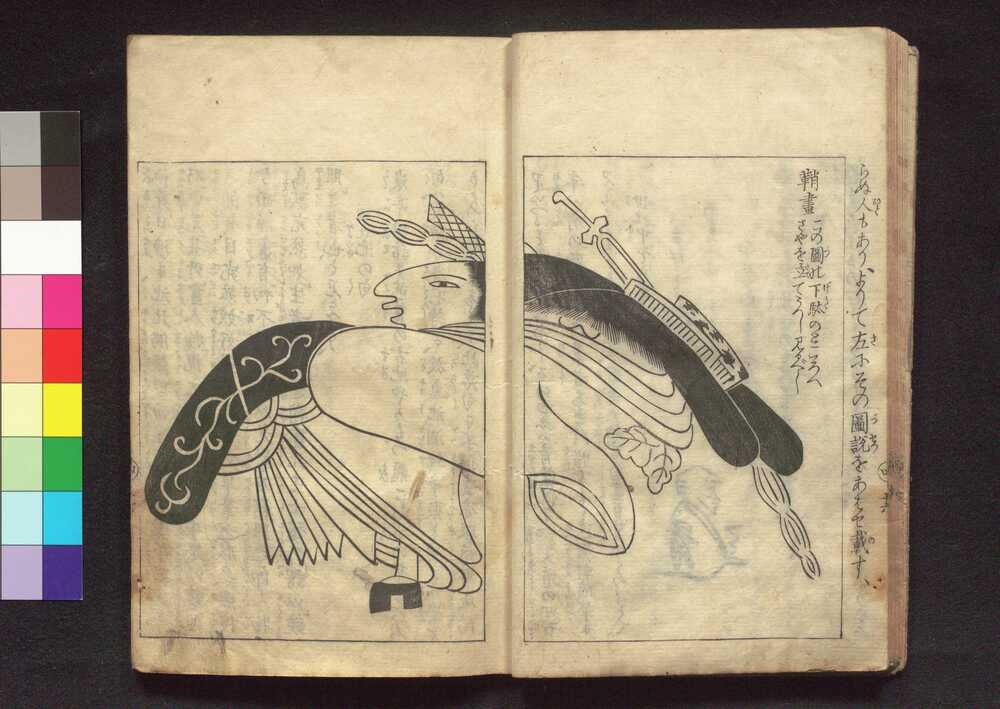 らぬ人もありよりて左にその圖説をあはせ載す
鞘畫
この圖の下駄のところへ
さやを立てうつし見るべし